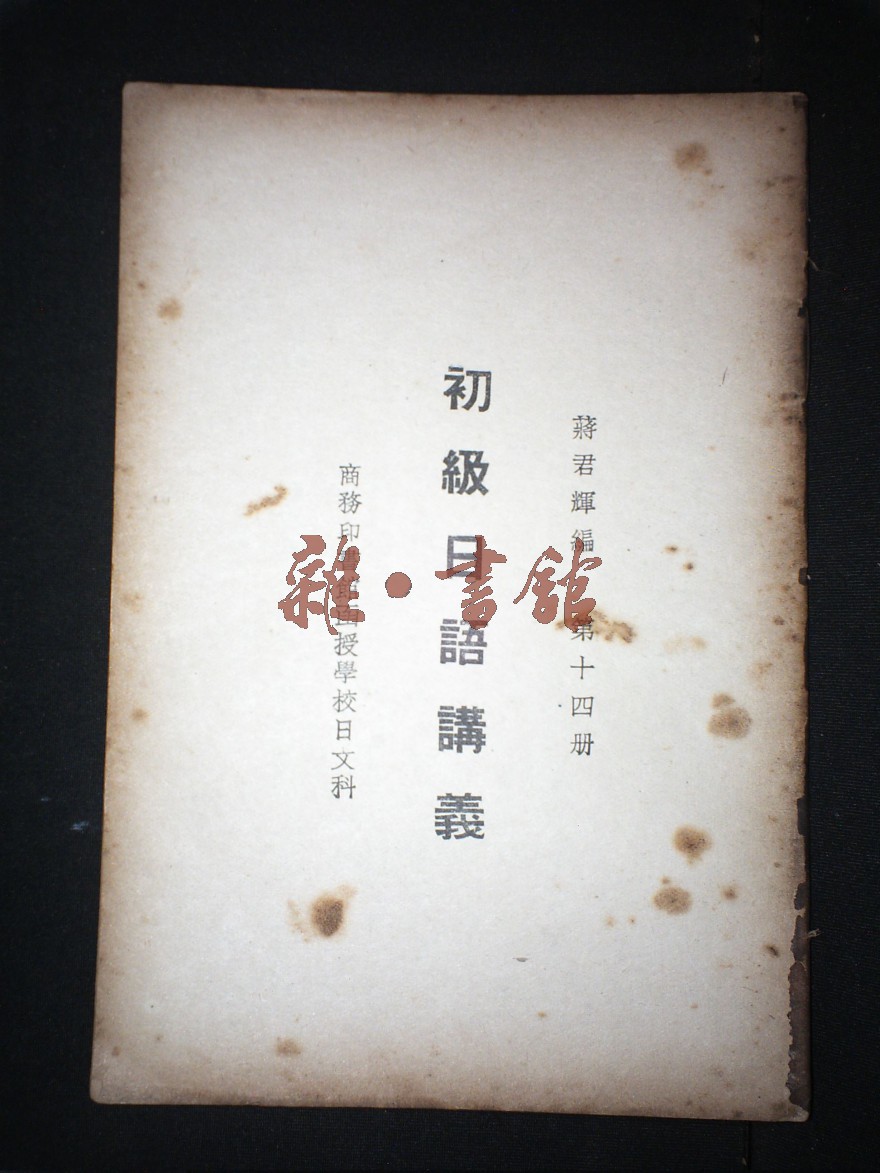 蔣君輝編 第十四册
初級日語講義
商務印書館函授學校日文科
雜·書館